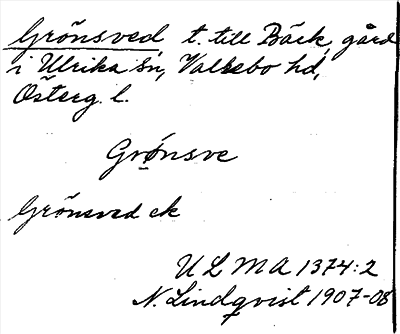 Grönsved t. till Bäck, gård
i Ulrika sn, Valkebo hd,
Österg. l.
Grönsve
Grönsved ek
ULMA 1374:2
N. Lindqvist 1907-08